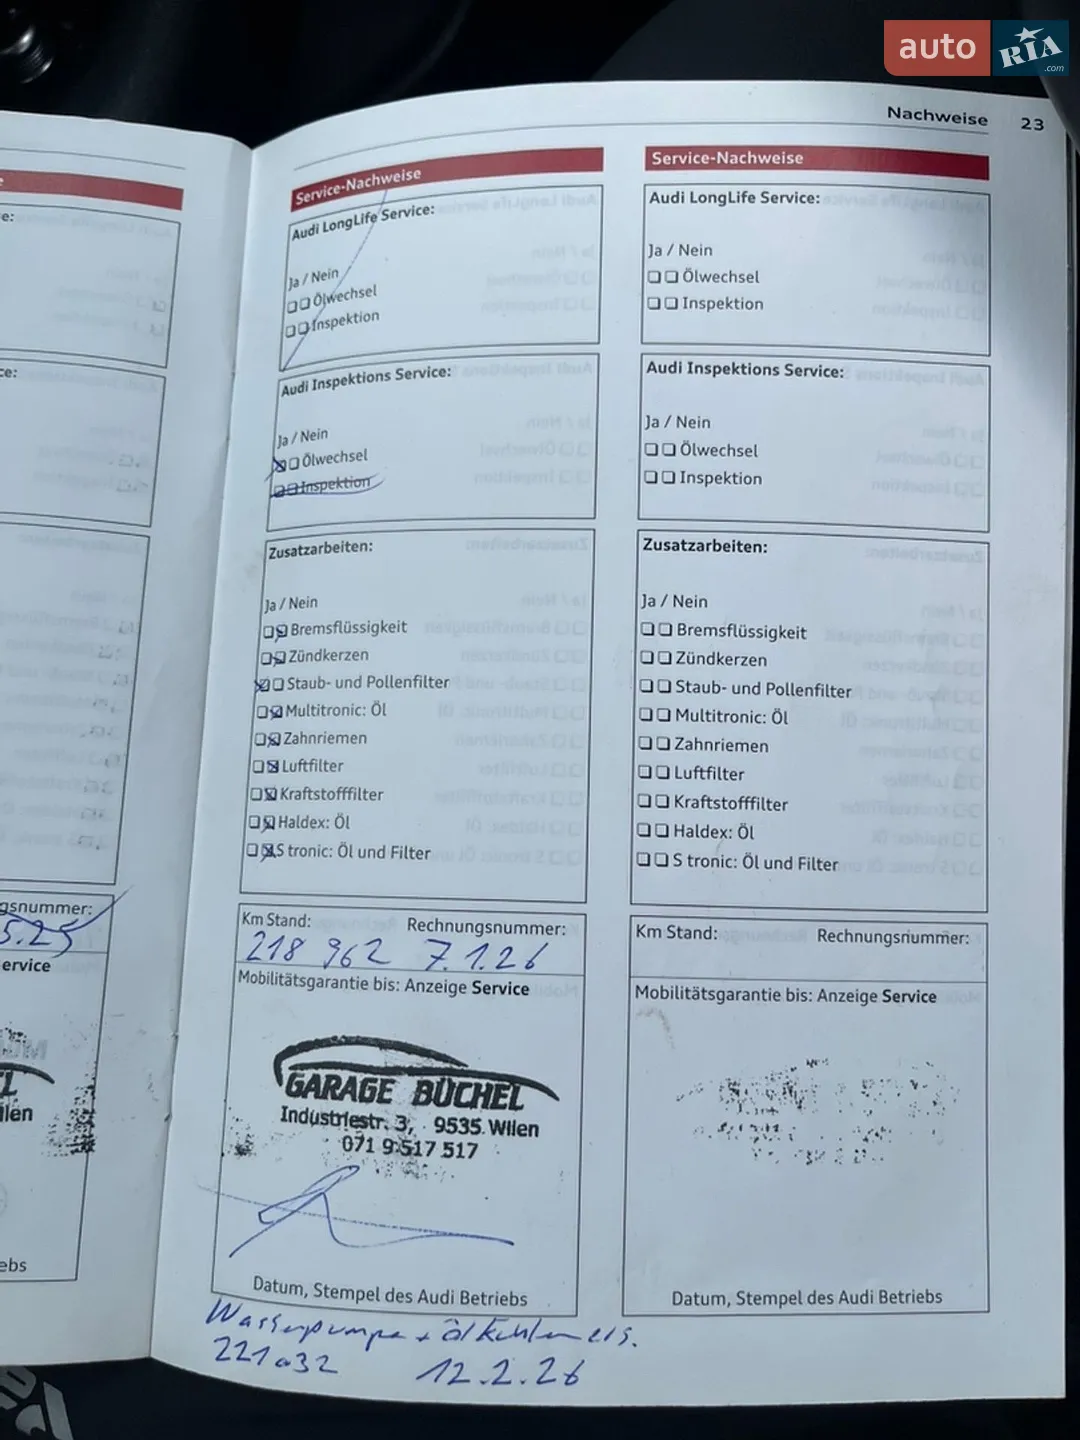 auto RIA .com
Nachweise 23
e:
ce:
gsnummer:
5.25
ervice
L
ilen
ebs
Service-Nachweise
Audi LongLife Service:
Ja / Nein
Ölwechsel
Inspektion
Audi Inspektions Service:
Ja / Nein
Ölwechsel
Inspektion
Zusatzarbeiten:
Ja / Nein
Bremsflüssigkeit
Zündkerzen
Staub- und Pollenfilter
Multitronic: Öl
Zahnriemen
Luftfilter
Kraftstofffilter
Haldex: Öl
S tronic: Öl und Filter
Km Stand: Rechnungsnummer:
218 962 7.1.26
Mobilitätsgarantie bis: Anzeige Service
GARAGE BÜCHEL
Industriestr. 3, 9535 Wilen
071 9 517 517
Datum, Stempel des Audi Betriebs
Wasserpumpe + Ölkühler ers.
221032 12.2.26
Service-Nachweise
Audi LongLife Service:
Ja / Nein
Ölwechsel
Inspektion
Audi Inspektions Service:
Ja / Nein
Ölwechsel
Inspektion
Zusatzarbeiten:
Ja / Nein
Bremsflüssigkeit
Zündkerzen
Staub- und Pollenfilter
Multitronic: Öl
Zahnriemen
Luftfilter
Kraftstofffilter
Haldex: Öl
S tronic: Öl und Filter
Km Stand: Rechnungsnummer:
Mobilitätsgarantie bis: Anzeige Service
Datum, Stempel des Audi Betriebs